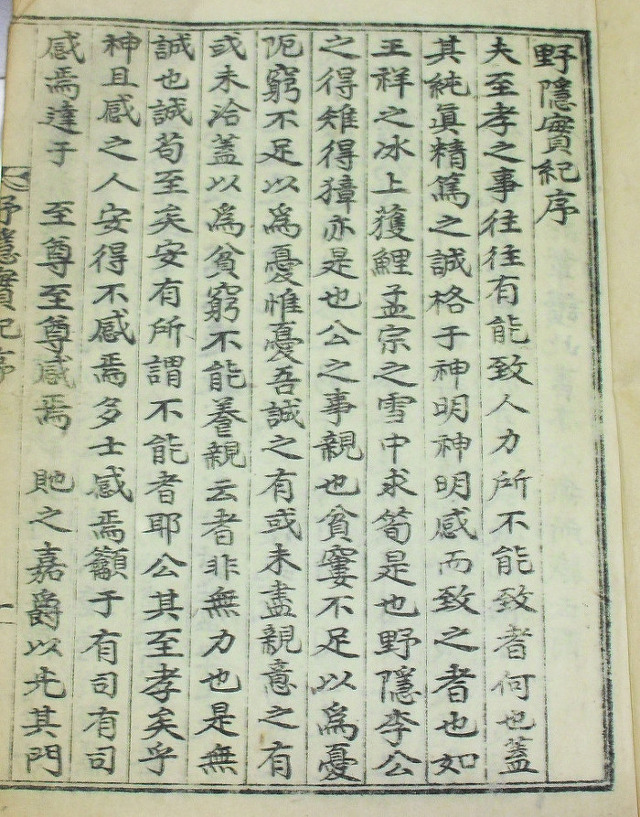 野隱實紀序
夫至孝之事往往有能致人力所不能致者何也蓋
其純眞精篤之誠格于神明神明感而致之者也如
王祥之冰上獲鯉孟宗之雪中求筍是也野隱李公
之得雉得獐亦是也公之事親也貧窶不足以爲憂
阨窮不足以爲憂惟憂吾誠之有或未盡親意之有
或未洽蓋以爲貧窮不能養親云者非無力也是無
誠也誠苟至矣安有所謂不能者耶公其至孝矣乎
神且感之人安得不感焉多士感焉籲于有司有司
感焉達于 至尊至尊感焉 貤之嘉爵以光其門
野隱實紀序
一